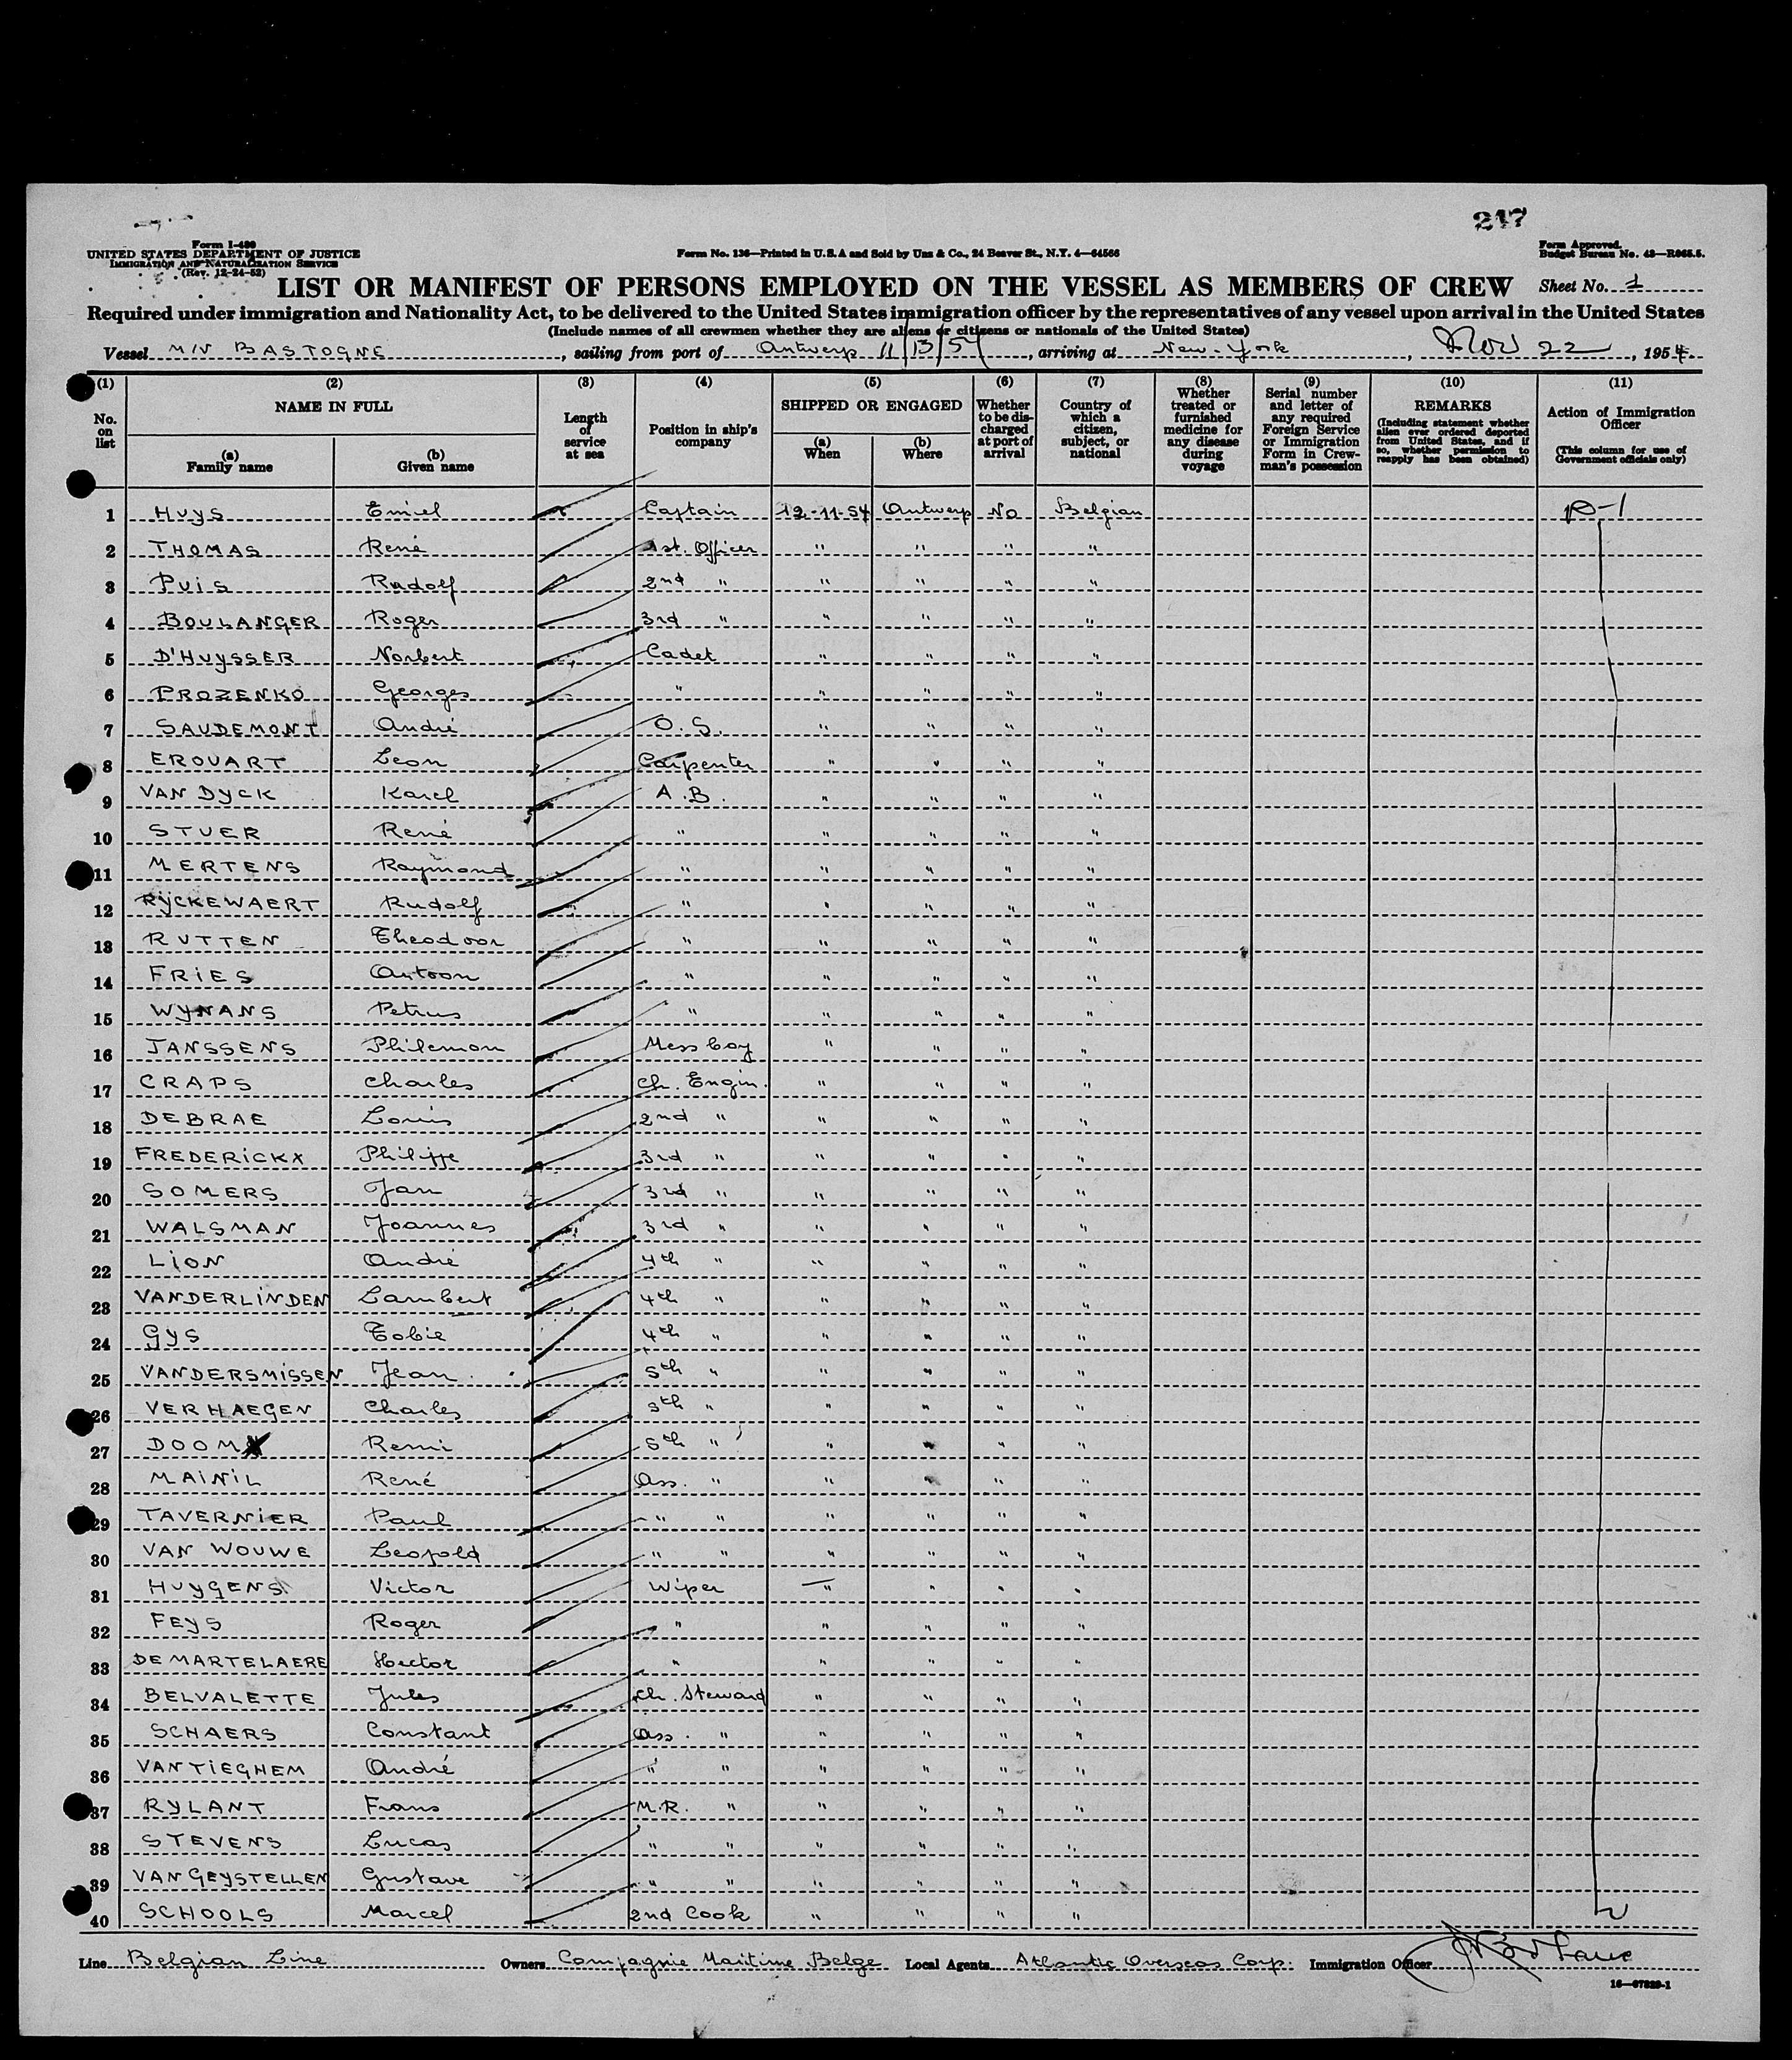 217
Form I-480
UNITED STATES DEPARTMENT OF JUSTICE
IMMIGRATION AND NATURALIZATION SERVICE
(Rev. 12-24-52)
Form No. 136—Printed in U.S.A and Sold by Unz & Co., 24 Beaver St., N.Y. 4—64566
Form Approved.
Budget Bureau No. 43—R065.5.
LIST OR MANIFEST OF PERSONS EMPLOYED ON THE VESSEL AS MEMBERS OF CREW Sheet No. 1
Required under immigration and Nationality Act, to be delivered to the United States immigration officer by the representatives of any vessel upon arrival in the United States
(Include names of all crewmen whether they are aliens or citizens or nationals of the United States)
Vessel M/V BASTOGNE, sailing from port of Antwerp 11/13/54, arriving at New-York, Nov 22, 1954
(1) No. on list
(2) NAME IN FULL
(a) Family name
(b) Given name
(3) Length of service at sea
(4) Position in ship's company
(5) SHIPPED OR ENGAGED
(a) When
(b) Where
(6) Whether to be discharged at port of arrival
(7) Country of which a citizen, subject, or national
(8) Whether treated or furnished medicine for any disease during voyage
(9) Serial number and letter of any required Foreign Service or Immigration Form in Crewman's possession
(10) REMARKS
(Including statement whether alien ever ordered deported from United States, and if so, whether permission to reapply has been obtained)
(11) Action of Immigration Officer
(This column for use of Government officials only)
1 HUYS Emiel Captain 12-11-54 Antwerp No Belgian D-1
2 THOMAS René 1st. Officer " " " "
3 PUIS Rudolf 2nd " " " " "
4 BOULANGER Roger 3rd " " " " "
5 D'HUYSSER Norbert Cadet " " " "
6 PROZENKO Georges " " " " "
7 SAUDEMONT André O.S. " " " "
8 EROUART Leon Carpenter " " " "
9 VAN DYCK Karel A.B. " " " "
10 STUER René " " " " "
11 MERTENS Raymond " " " " "
12 RYCKEWAERT Rudolf " " " " "
13 RUTTEN Theodoor " " " " "
14 FRIES Antoon " " " " "
15 WYNANS Petrus " " " " "
16 JANSSENS Philemon Mess boy " " " "
17 CRAPS Charles Ch. Engin. " " " "
18 DEBRAE Louis 2nd " " " " "
19 FREDERICKX Philippe 3rd " " " " "
20 SOMERS Jan 3rd " " " " "
21 WALSMAN Joannes 3rd " " " " "
22 LION André 4th " " " " "
23 VANDERLINDEN Lambert 4th " " " " "
24 GYS Tobie 4th " " " " "
25 VANDERSMISSEN Jean 5th " " " " "
26 VERHAEGEN Charles 5th " " " " "
27 DOOM Remi 5th " " " " "
28 MAINIL René Ass. " " " " "
29 TAVERNIER Paul " " " " " "
30 VAN WOUWE Leopold " " " " " "
31 HUYGENS Victor Wiper " " " "
32 FEYS Roger " " " " "
33 DE MARTELAERE Hector " " " " "
34 BELVALETTE Jules Ch. Steward " " " "
35 SCHAERS Constant Ass. " " " " "
36 VANTIEGHEM André " " " " " "
37 RYLANT Frans M.R. " " " " "
38 STEVENS Lucas " " " " " "
39 VAN GEYSTELLEN Gustave " " " " " "
40 SCHOOLS Marcel 2nd Cook " " " "
Line Belgian Line Owners Compagnie Maritime Belge Local Agents Atlantic Overseas Corp. Immigration Officer
16—67829-1